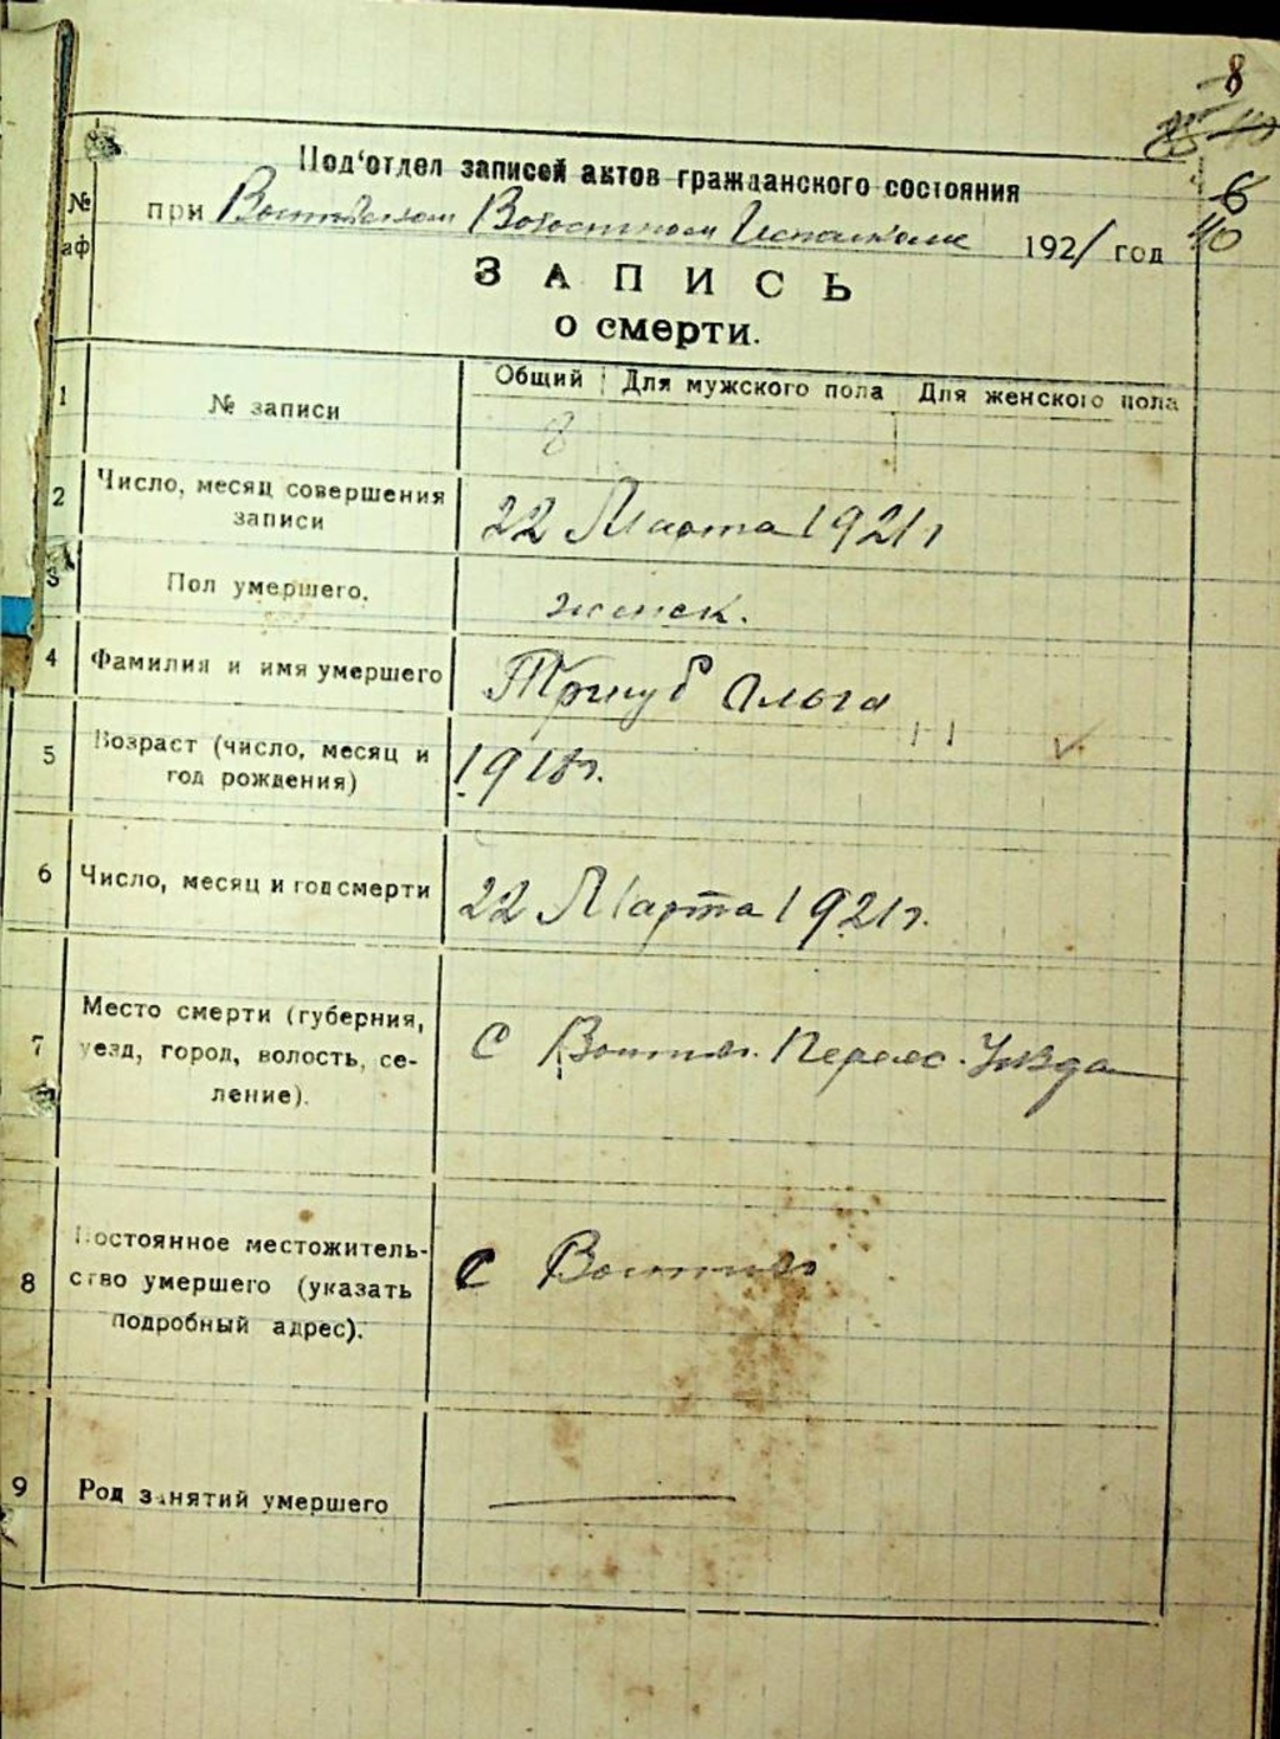 8
6
40
Под‘отдел записей актов гражданского состояния
при Войтовском Волостном Исполкоме 1921 год
№
аф
ЗАПИСЬ
о смерти.
1 № записи Общий Для мужского пола Для женского пола
8
2 Число, месяц совершения
записи
22 Марта 1921 г
3 Пол умершего.
женск.
4 Фамилия и имя умершего
Тригуб Ольга
5 Возраст (число, месяц и
год рождения)
1918 г.
6 Число, месяц и год смерти
22 Марта 1921 г.
7 Место смерти (губерния,
уезд, город, волость, се-
ление).
С Перея с. Уезда
8 Постоянное местожитель-
ство умершего (указать
подробный адрес).
С
9 Род занятий умершего